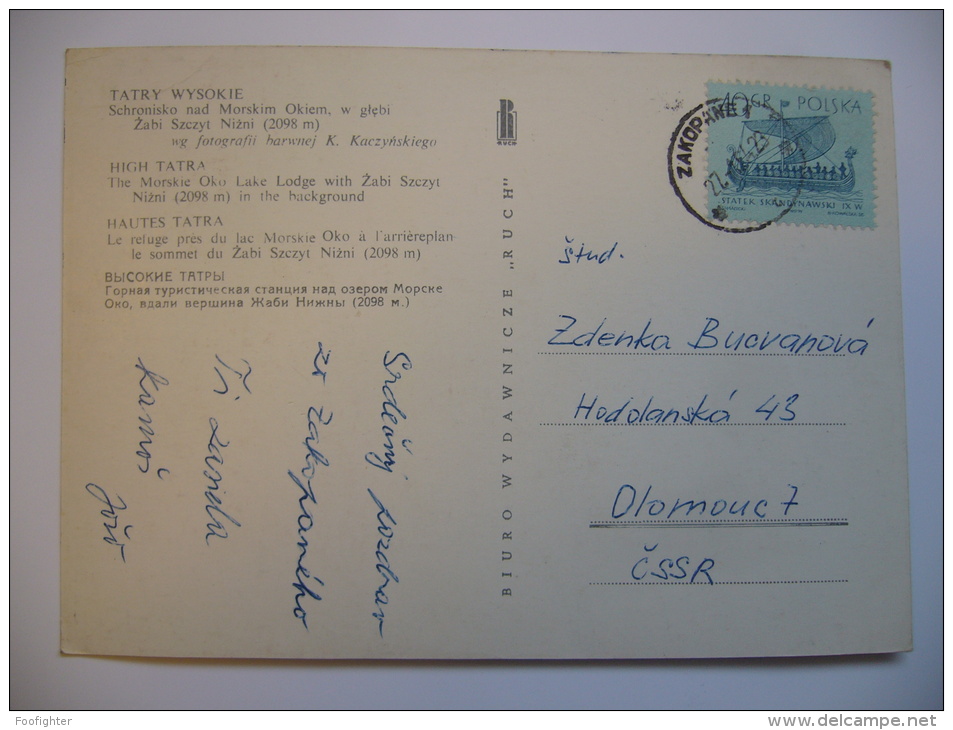 TATRY WYSOKIE
Schronisko nad Morskim Okiem, w głębi
Żabi Szczyt Niżni (2098 m)
wg fotografii barwnej K. Kaczyńskiego
HIGH TATRA
The Morskie Oko Lake Lodge with Żabi Szczyt
Niżni (2098 m) in the background
HAUTES TATRA
Le refuge près du lac Morskie Oko à l'arrièreplan
le sommet du Żabi Szczyt Niżni (2098 m)
ВЫСОКИЕ ТАТРЫ
Горная туристическая станция над озером Морске
Око, вдали вершина Жаби Нижны (2098 м.)
Srdečný pozdrav
zo Zakopaného
Ti zasiela
kamoš
Jožo
RUCH
BIURO WYDAWNICZE „RUCH"
ZAKOPANE 1
40 GR POLSKA
STATEK SKANDYNAWSKI IX W.
Štud.
Zdenka Bucvanová
Hodolanská 43
Olomouc 7
ČSSR
Foofighter
www.delcampe.net